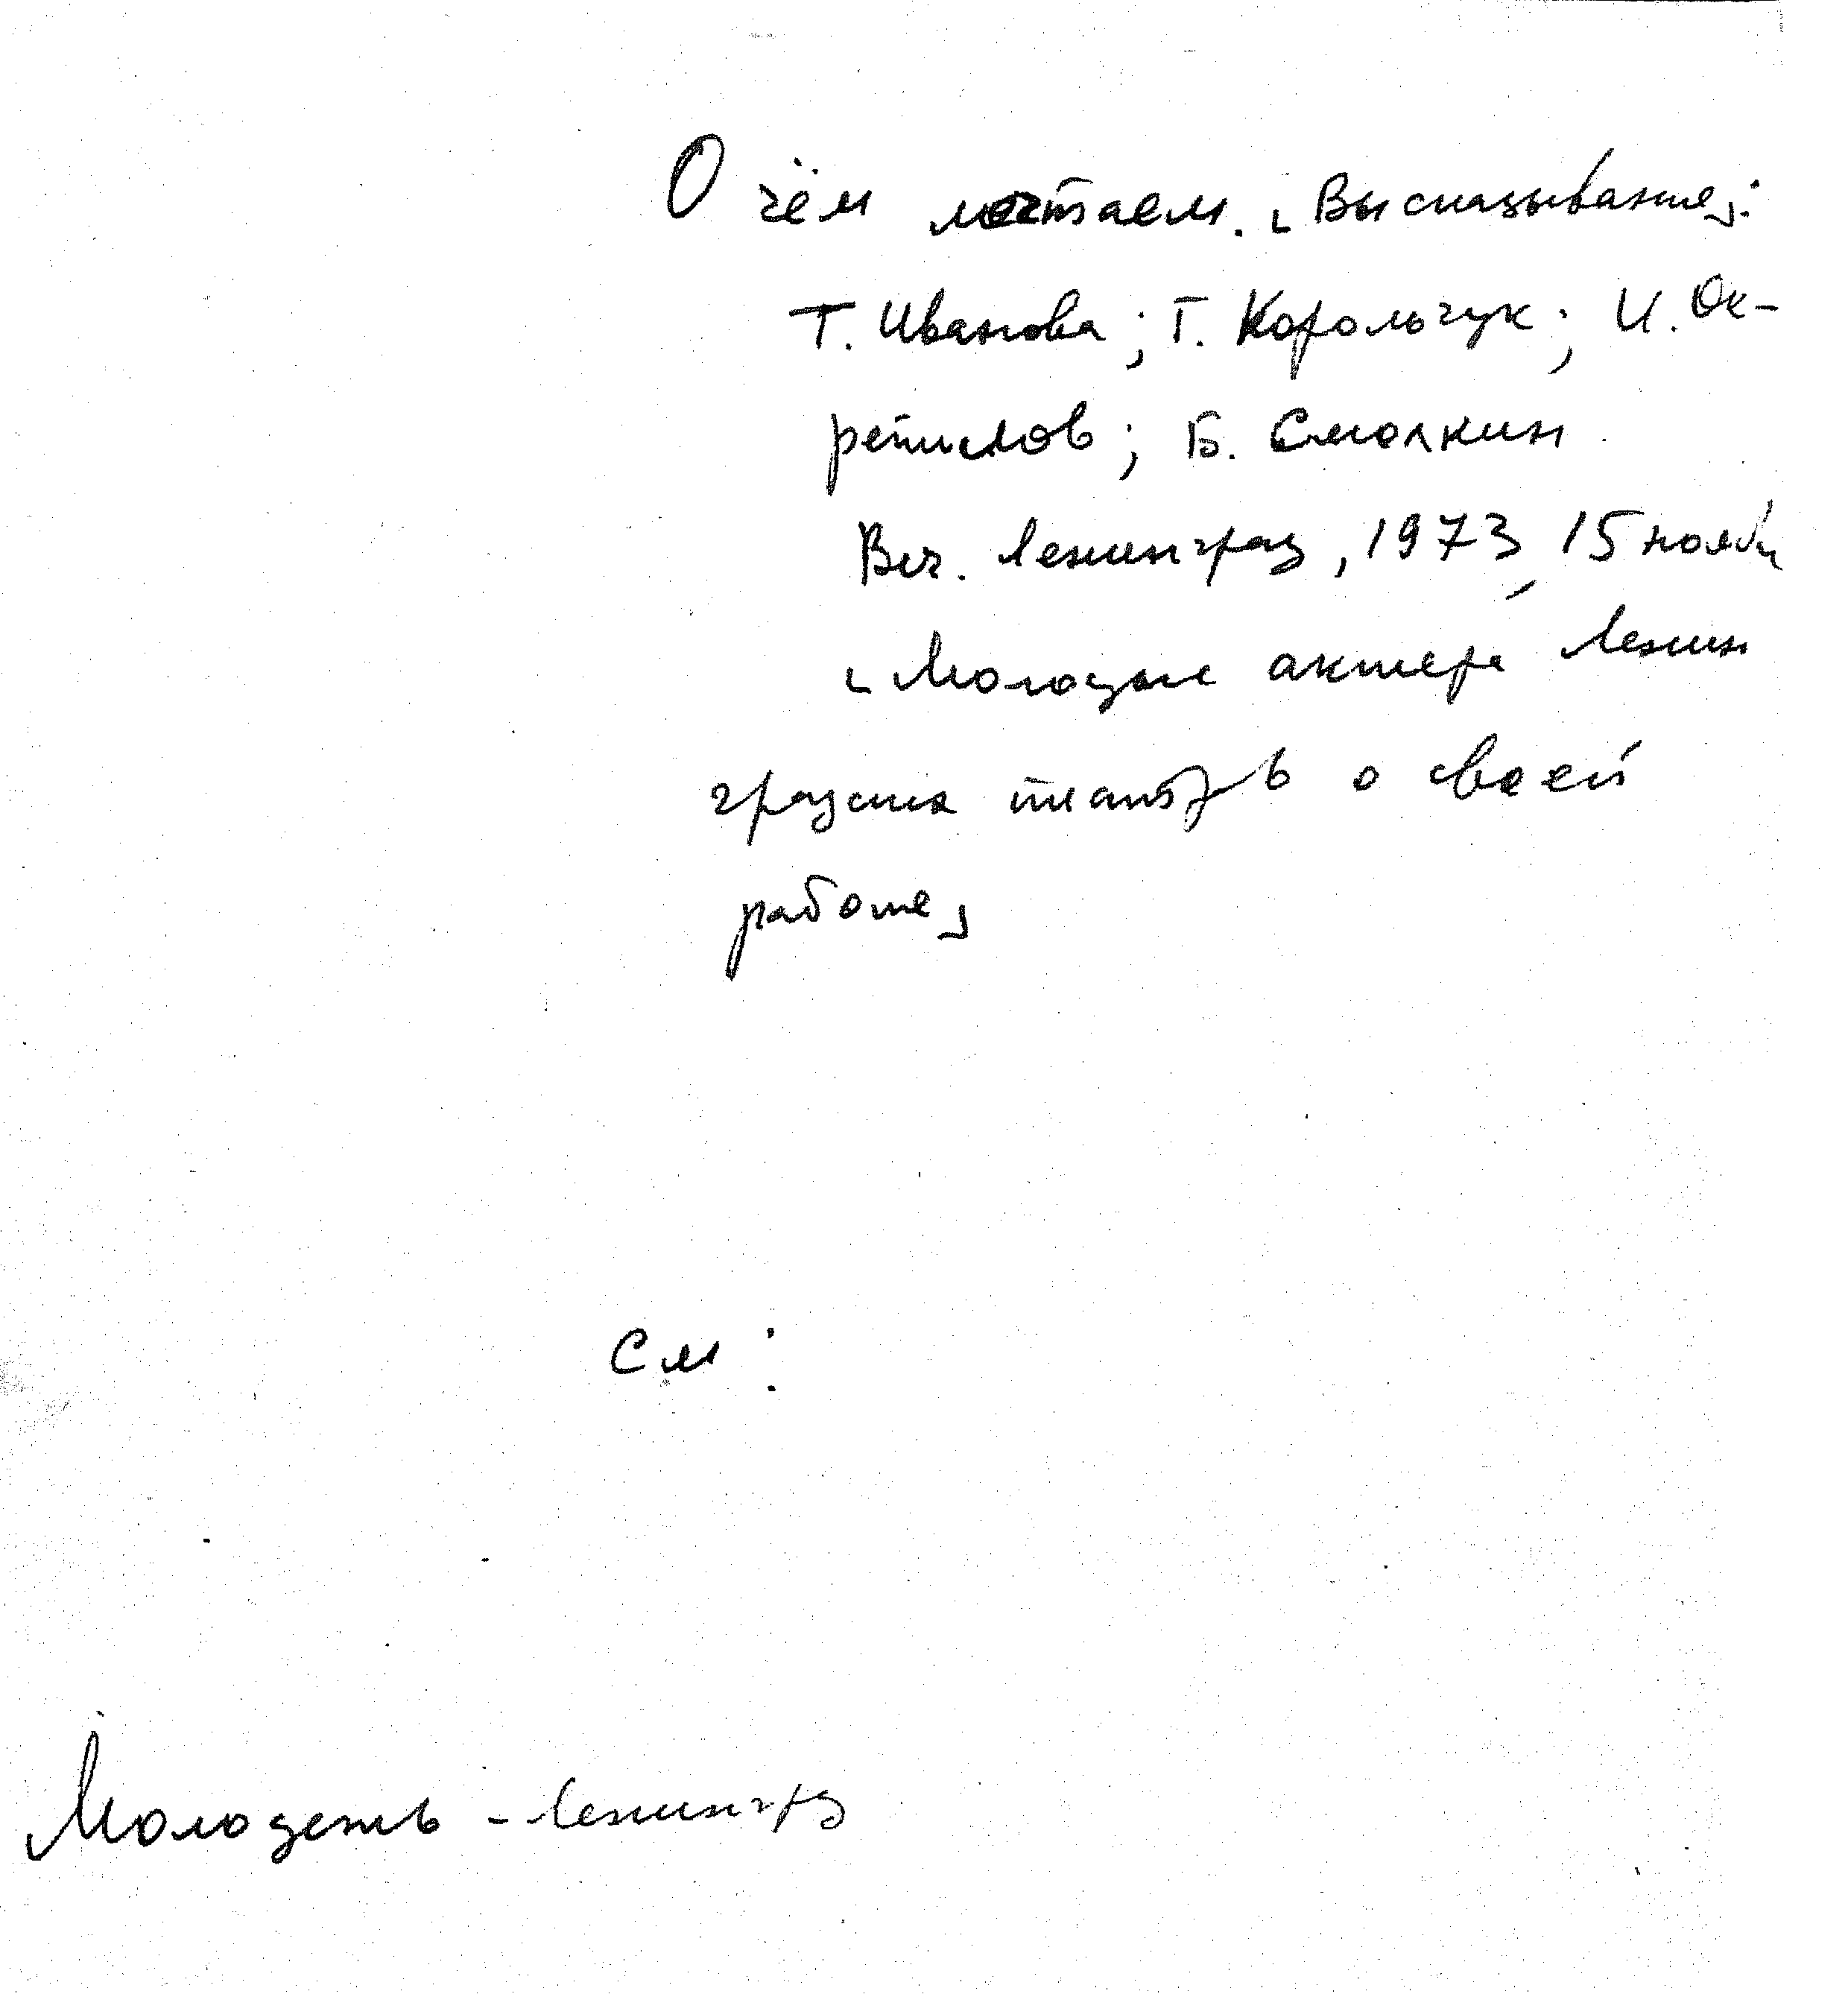 О чём мечтаем. [Высказывание]:
Т. Иванова; Г. Корольчук; И. Ок-
репилов; Б. Смолкин.
Веч. Ленинград, 1973, 15 нояб.
[Молодые актеры Ленин
градских театров о своей
работе]
См:
Молодежь - Ленинград